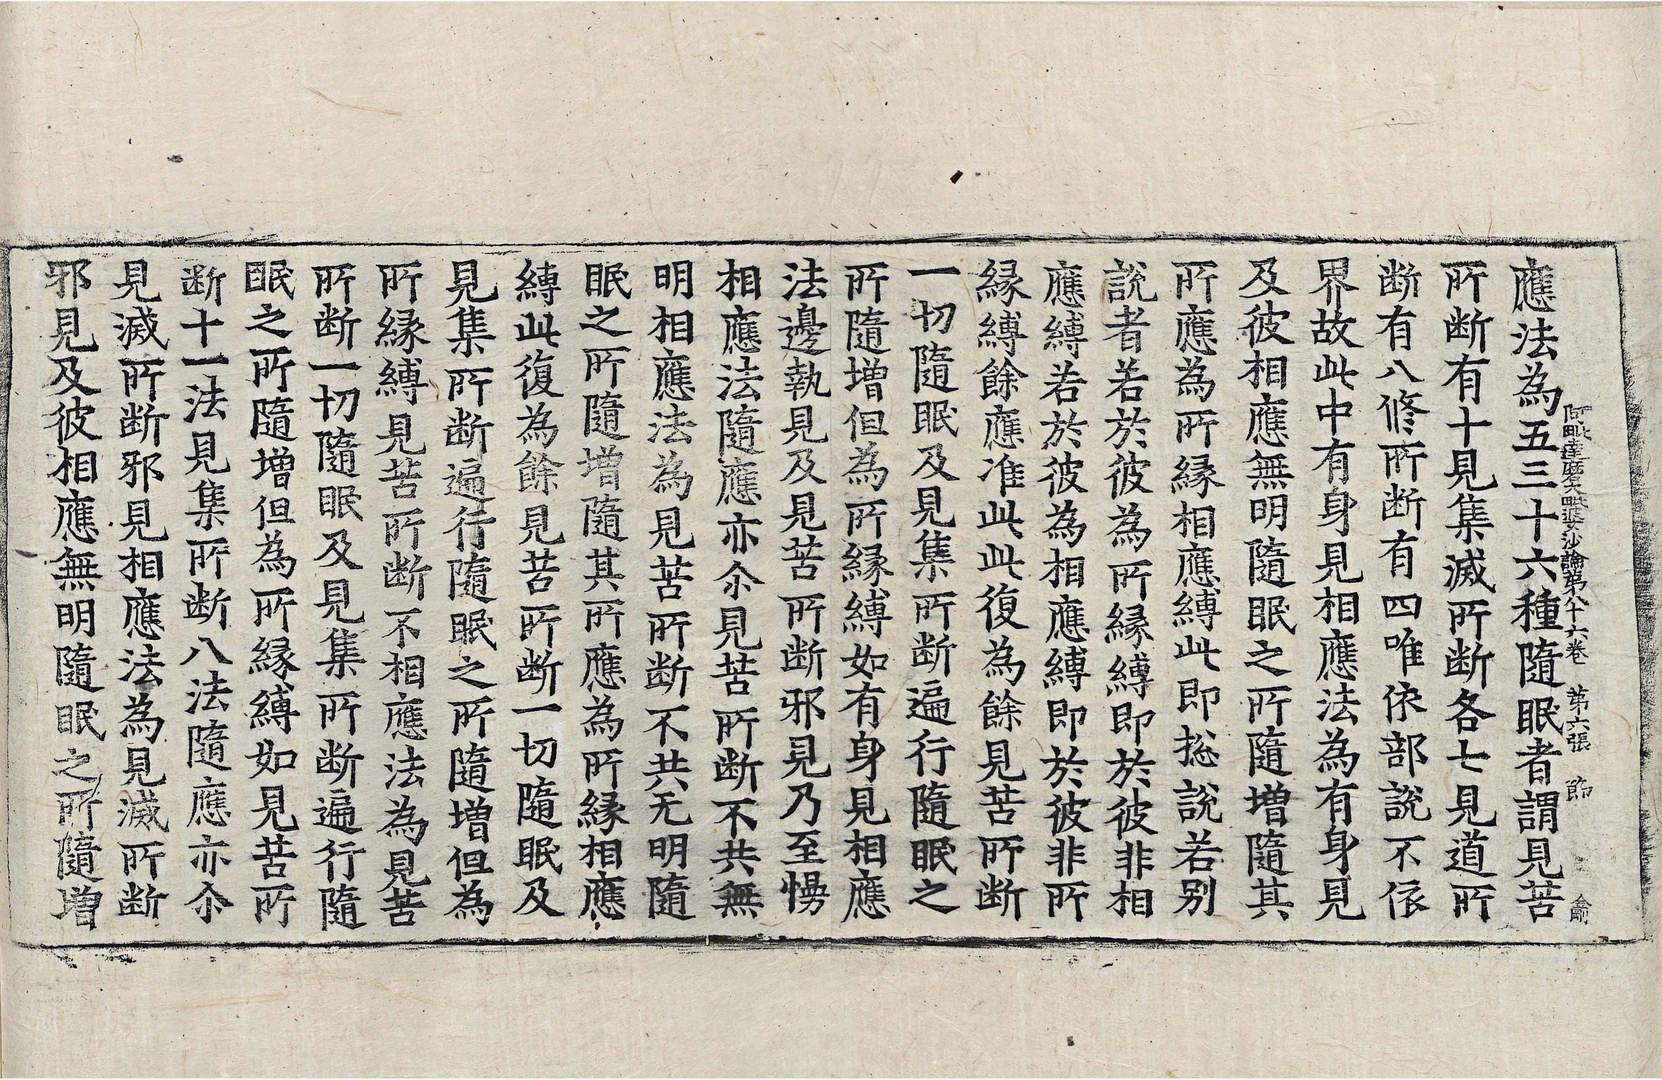 阿毗達磨大毗婆沙論第八十六卷　第六張　節
應法為五三十六種隨眠者謂見苦
所断有十見集滅所断各七見道所
断有八修所断有四唯依部說不依
界故此中有身見相應法為有身見
及彼相應無明隨眠之所隨增隨其
所應為所緣相應縛此即捴說若别
說者若於彼為所緣縛即於彼非相
應縛若於彼為相應縛即於彼非所
緣縛餘應准此此復為餘見苦所断
一切隨眠及見集所断遍行隨眠之
所隨增但為所緣縛如有身見相應
法邊執見及見苦所断邪見乃至慢
相應法隨應亦尒見苦所断不共無
明相應法為見苦所断不共无明隨
眠之所隨增隨其所應為所緣相應
縛此復為餘見苦所断一切隨眠及
見集所断遍行隨眠之所隨增但為
所緣縛見苦所断不相應法為見苦
所断一切隨眠及見集所断遍行隨
眠之所隨增但為所緣縛如見苦所
断十一法見集所断八法隨應亦尒
見滅所断邪見相應法為見滅所断
邪見及彼相應無明隨眠之所隨增